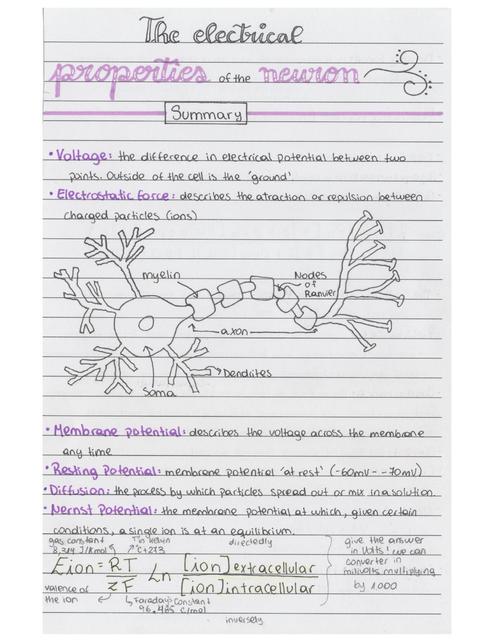 The electrical
properties of the neuron
Summary
• Voltage: the difference in electrical potential between two
points. Outside of the cell is the 'ground'
• Electrostatic force: describes the atraction or repulsion between
charged particles (ions)
myelin
Nodes
of
Ranvier
axon
Dendrites
Soma
• Membrane potential: describes the voltage across the membrane
any time
• Resting Potential: membrane potential 'at rest' (-60mV - -70mV)
• Diffusion: the process by which particles spread out or mix in a solution.
• Nernst Potential: the membrane potential at which, given certain
conditions, a single ion is at an equilibrium.
gas constant
8,314 J/Kmol
T in kelvin
°C+273
directedly
Eion = RT/zF Ln [ion] extracellular/[ion] intracellular
valence of
the ion
Faradays constant
96,485 c/mol
inversely
give the answer
in Volts! we can
converter in
milivolts multiplying
by 1.000